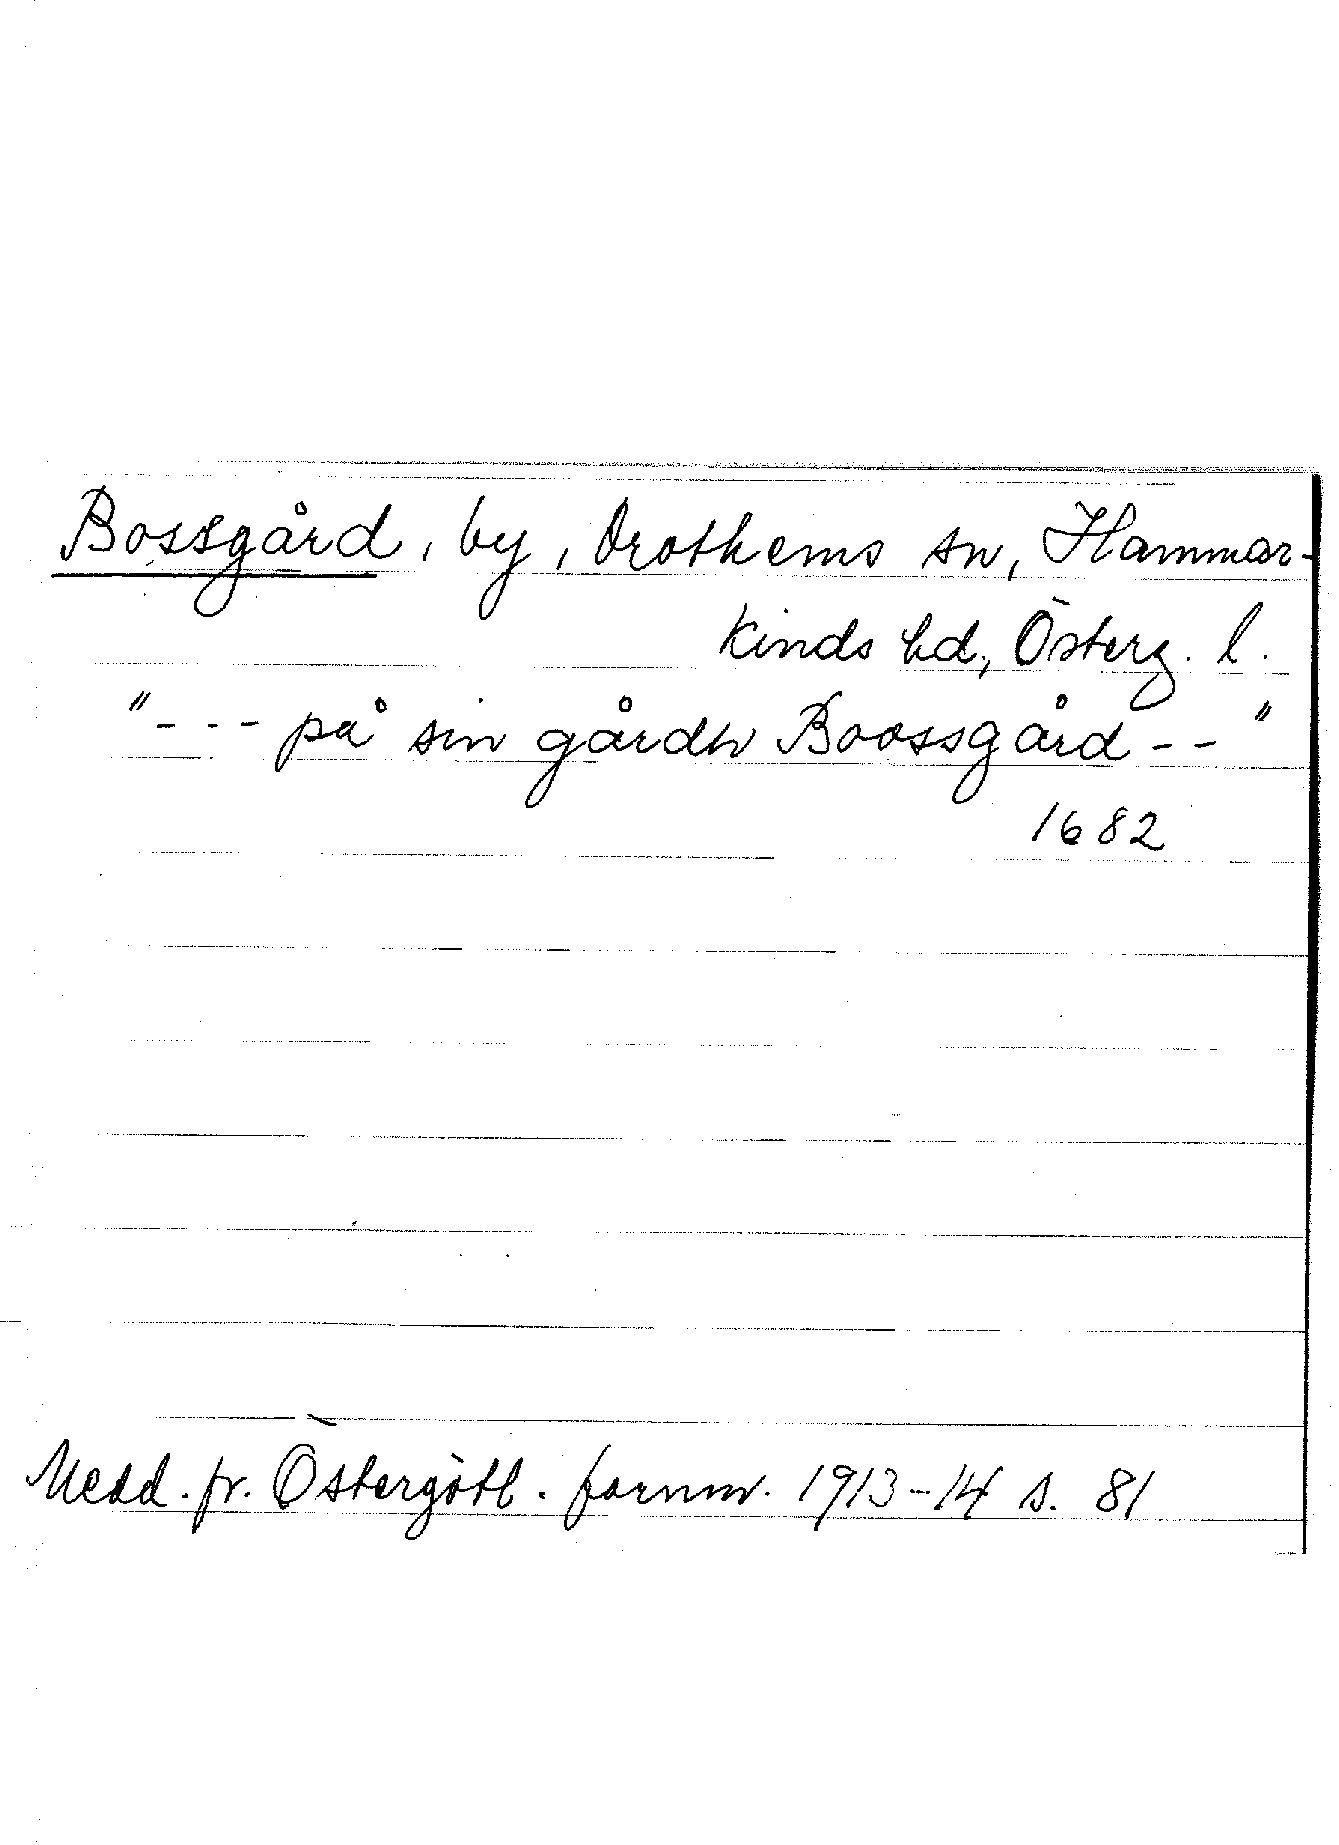 Bossgård, by, Drothems sn, Hammar-
kinds hd, Österg. l.
"--- på sin gårdh Boossgård -- "
1682
Medd. fr. Östergötl. fornm. 1913-14 s. 81